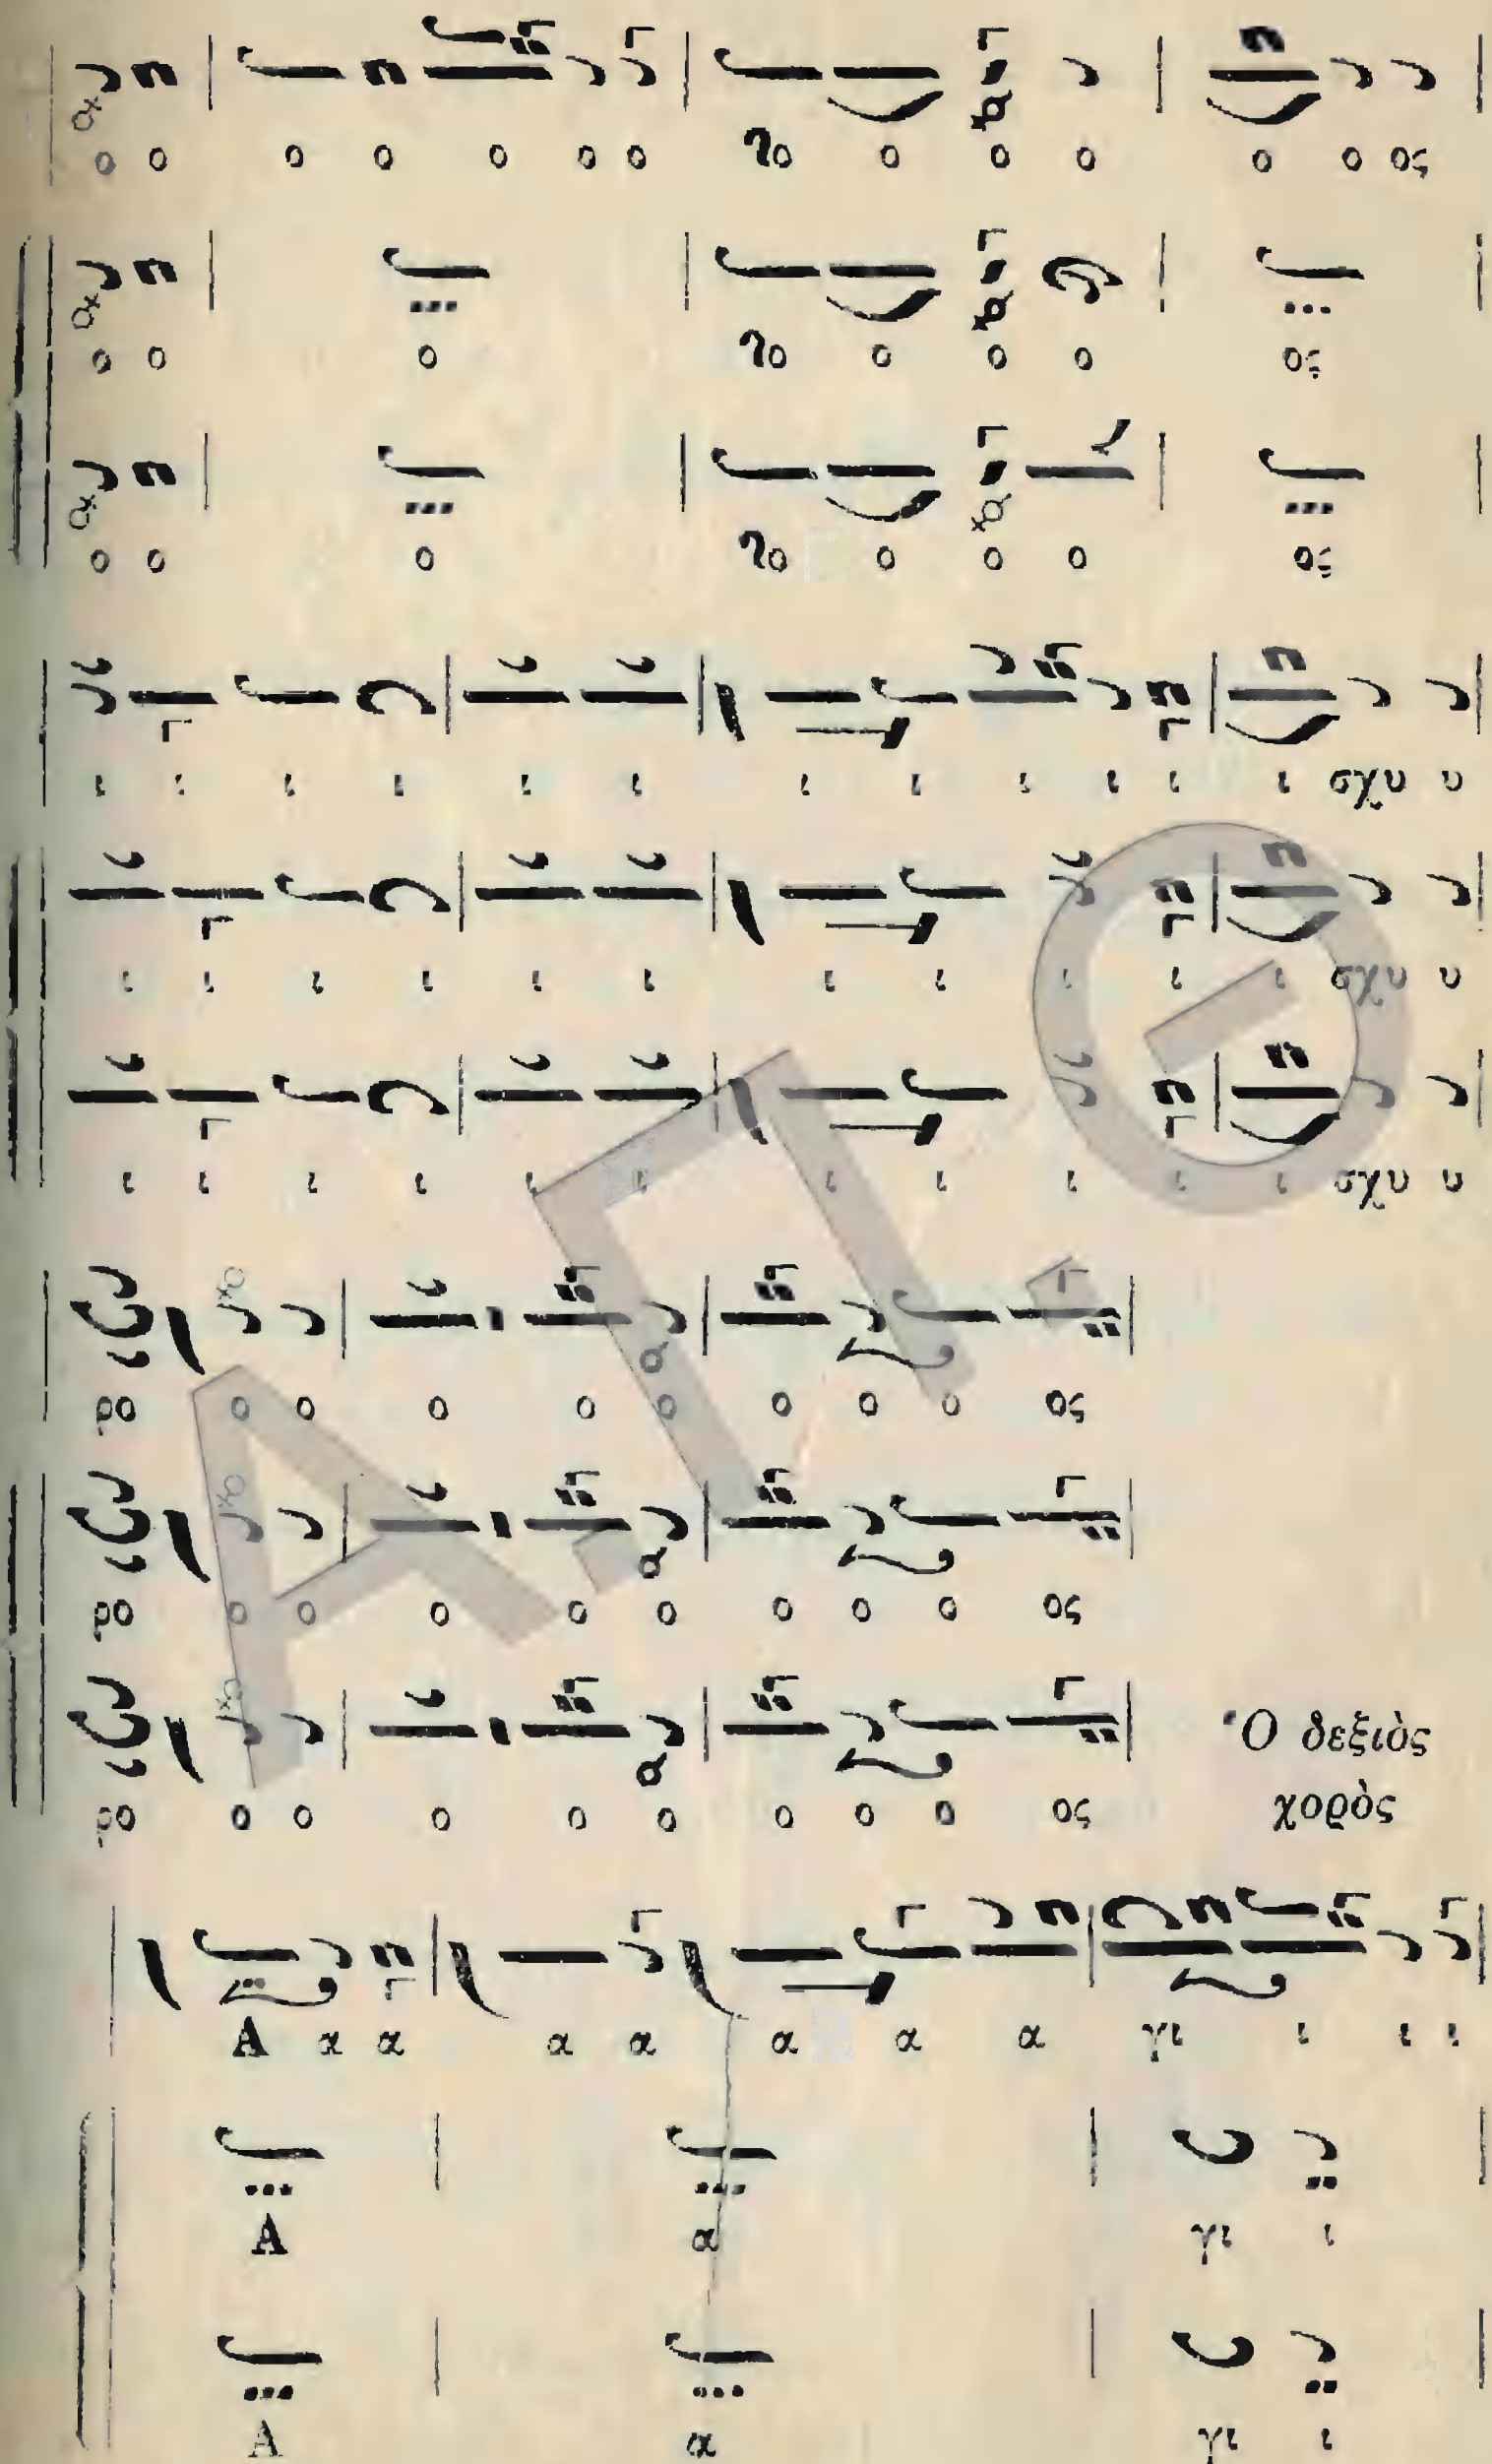 ο ο ο ο ο ο ο ο ο ο ο ο ο ος
ο ο ο ο ο ο ο ος
ο ο ο ο ο ο ο ος
ι ι ι ι ι ι ι ι ι ι ι ι σχυ υ
ι ι ι ι ι ι ι ι ι ι ι σχυ υ
ι ι ι ι ι ι ι ι ι ι ι σχυ υ
ρο ο ο ο ο ο ο ο ο ος
ρο ο ο ο ο ο ο ο ο ος
Ὁ δεξιὸς
χορὸς
ρο ο ο ο ο ο ο ο ο ος
Α α α α α α α α γι ι ι ι
Α α γι ι
Α α γι ι